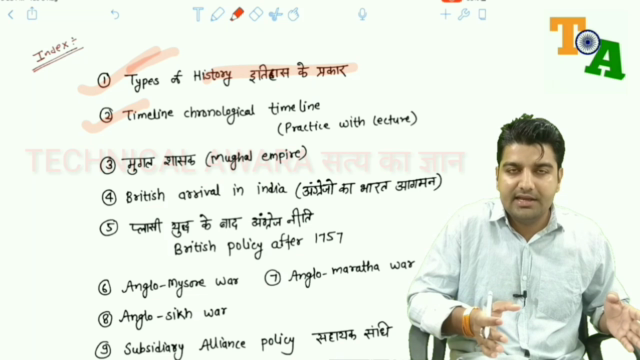 Index:-
TOA
① Types of History इतिहास के प्रकार
② Timeline chronological timeline
(Practice with Lecture)
TECHNICAL AWARA सत्य का ज्ञान
③ मुगल शासक (Mughal empire)
④ British arrival in india (अंग्रेजो का भारत आगमन)
⑤ प्लासी युद्ध के बाद अंग्रेज नीति
British policy after 1757
⑥ Anglo-Mysore war ⑦ Anglo-maratha war
⑧ Anglo-sikh war
⑨ Subsidiary Alliance policy सहायक संधि